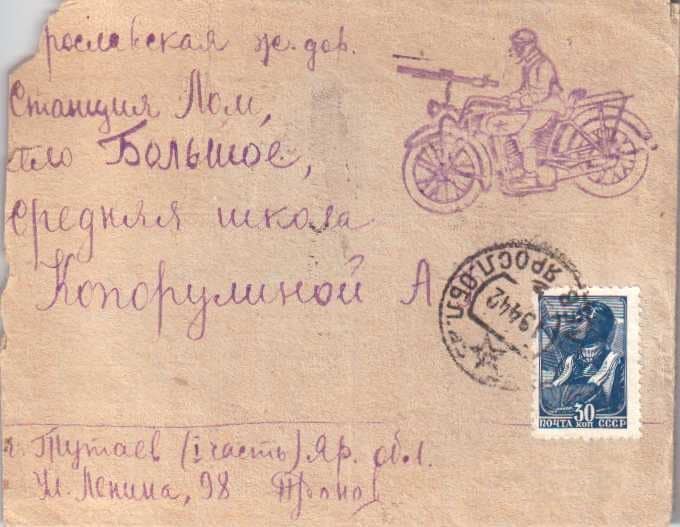 рославская ж. дор.
Станция Лом,
ело Большое,
средняя школа
Копорулиной А
ЯРОСЛ. ОБЛ.
30 КОП
ПОЧТА СССР
г. Тутаев (I часть) Яр. обл.
Ул. Ленина, 98